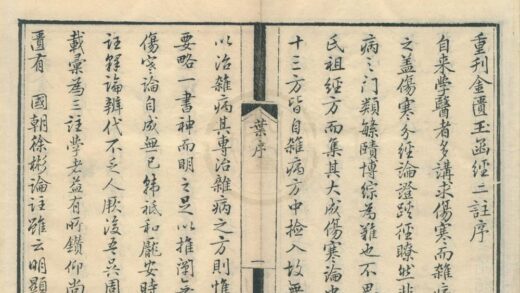 重刊金匱玉函經二註序
自来學醫者多講求傷寒而雜
之蓋傷寒分經論證蹊徑瞭然非
病之門類繁賾博綜為難也不思
氏祖經方而集其大成傷寒論中
十三方皆自雜病方中撿入故無
葉序
一
以治雜病其專治雜病之方則惟
要略一書神而明之足以推闡
傷寒論自成無已韓祗和龐安時
註釋論辨代不乏人厥後五吳周
載彙為三註學者益有所鑽仰尚
匱有 國朝徐彬論註雖云明顯